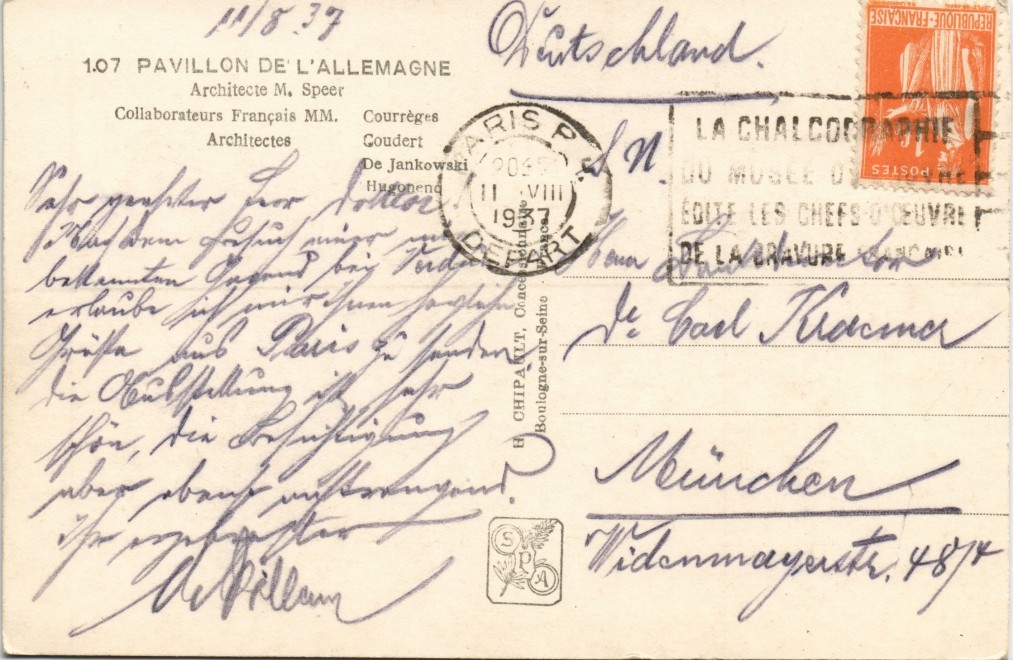 11/8.37
Deutschland.
107 PAVILLON DE L'ALLEMAGNE
Architecte M. Speer
Collaborateurs Français MM. Courrèges
Architectes Goudert
De Jankowski
Hugonenq
Sehr geehrter Herr Doktor
Nach dem Besuch einer
bekannten Gegend bei Verdun
erlaube ich mir Ihnen herzliche
Grüße aus Paris zu senden
die Ausstellung ist sehr
schön, die Besichtigung
aber ebenso anstrengend.
Ihr ergebenster
PARIS
11 VIII
1937
DEPART
RÉPUBLIQUE-FRANÇAISE
POSTES
LA CHALCOGRAPHIE
DU MUSÉE DU LOUVRE
ÉDITE LES CHEFS-D'ŒUVRE
DE LA GRAVURE FRANÇAISE
S. H.
Herrn
Dr Carl Kraemer
München
Widenmayerstr. 48/4
H. CHIPAULT, Concessionnaire
Boulogne-sur-Seine
SPA